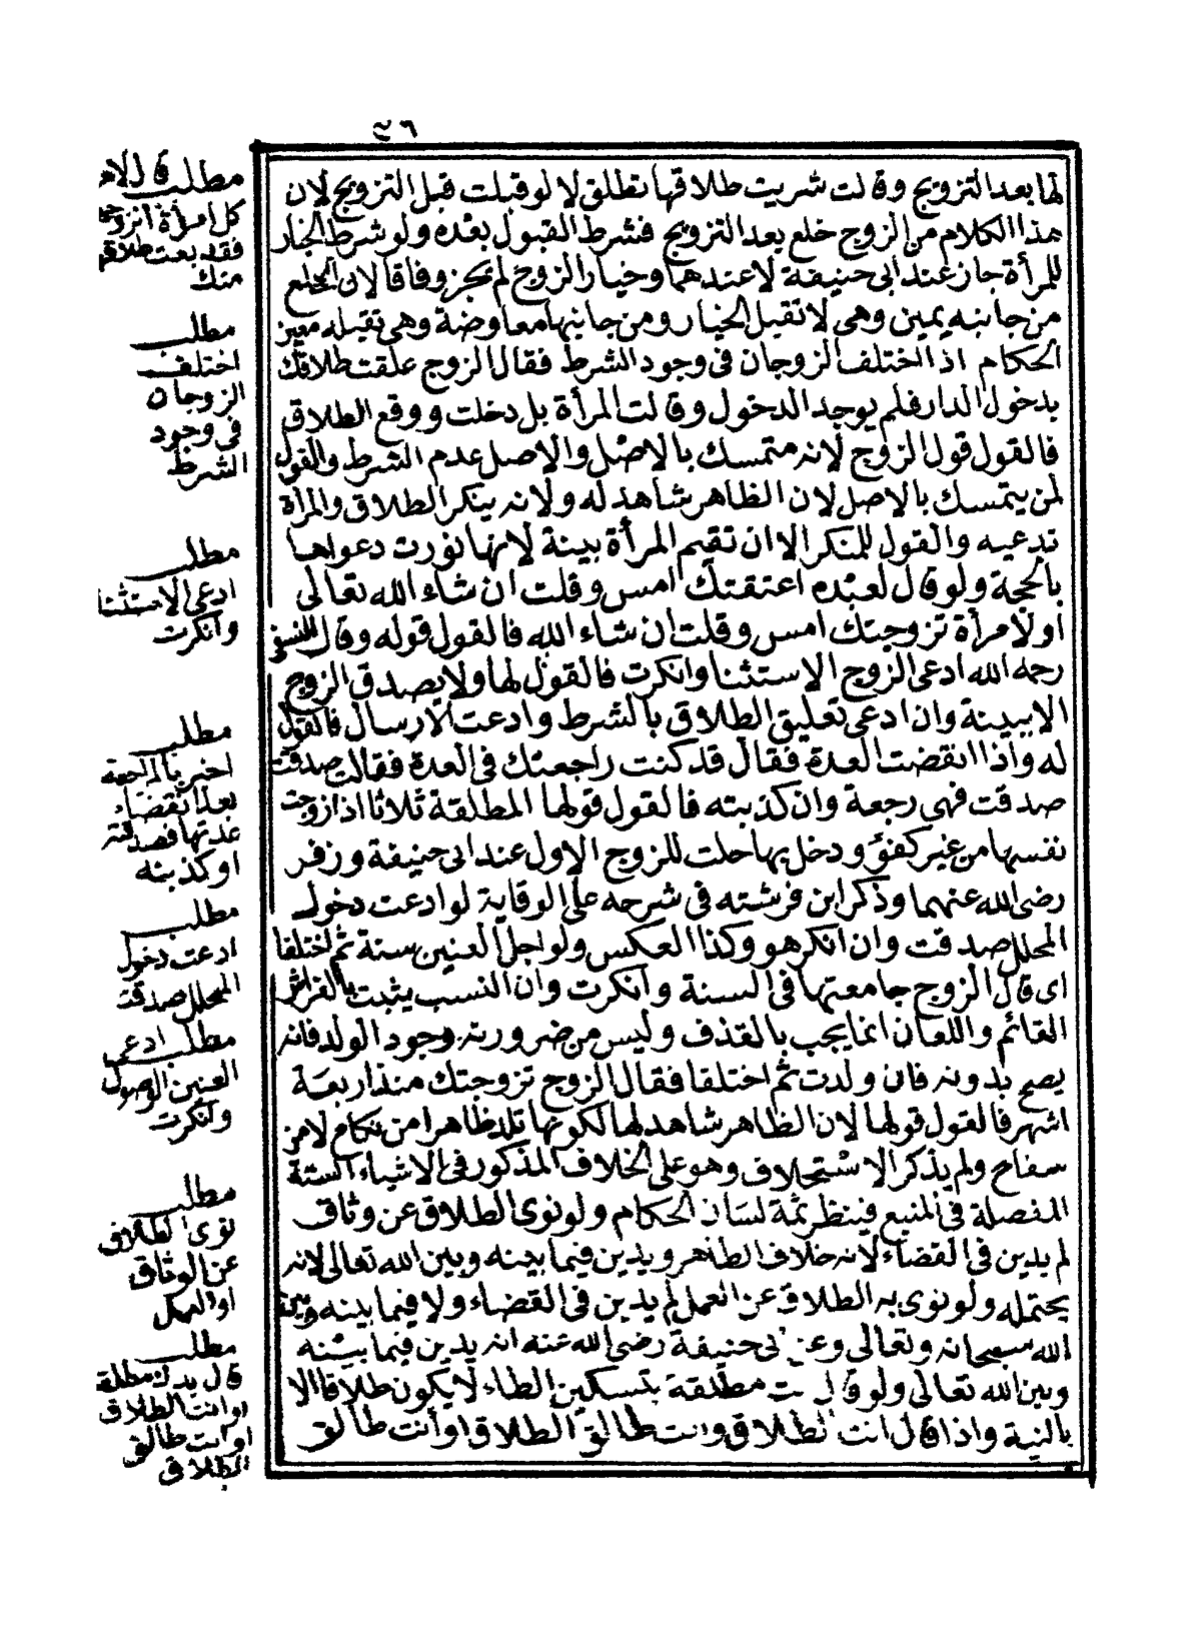 ٤٦
لها بعد التزويج وقالت شريت طلاقها تطلق لا لو قبلت قبل التزويج لان
هذا الكلام من الزوج خلع بعد التزويج فشرط القبول بعده ولو شرط الخيار
للمرأة جاز عند ابى حنيفة لا عندهما وخيار الزوج لم يجز وفاقا لان الخلع
من جانبه يمين وهى لا تقبل الخيار ومن جانبها معاوضة وهى تقبله معين
الحكام اذا اختلف الزوجان فى وجود الشرط فقال الزوج علقت طلاقك
بدخول الدار فلم يوجد الدخول وقالت المرأة بل دخلت ووقع الطلاق
فالقول قول الزوج لانه متمسك بالاصل والاصل عدم الشرط والقول
لمن يتمسك بالاصل لان الظاهر شاهد له ولانه ينكر الطلاق والمرأة
تدعيه والقول للمنكر الا ان تقيم المرأة بينة لانها نورت دعواها
بالحجة ولو قال لعبده اعتقتك امس وقلت ان شاء الله تعالى
او لامرأة تزوجتك امس وقلت ان شاء الله فالقول قوله وقال النسفى
رحمه الله ادعى الزوج الاستثنا وانكرت فالقول لها ولا يصدق الزوج
الا ببينة وان ادعى تعليق الطلاق بالشرط وادعت الارسال فالقول
له واذا انقضت العدة فقال قد كنت راجعتك فى العدة فقالت صدقت
صدقت فهى رجعة وان كذبته فالقول قولها المطلقة ثلاثا اذا زوجت
نفسها من غير كفؤ ودخل بها حلت للزوج الاول عند ابى حنيفة وزفر
رضى الله عنهما وذكر ابن فرشته فى شرحه على الوقاية لو ادعت دخول
المحلل صدقت وان انكر هو وكذا العكس ولو اجل العنين سنة ثم اختلفا
اى قال الزوج جامعتها فى السنة وانكرت وان النسب يثبت بالفراش
القائم واللعان انما يجب بالقذف وليس من ضرورته وجود الولد فانه
يصح بدونه فان ولدت ثم اختلفا فقال الزوج تزوجتك منذ اربعة
اشهر فالقول قولها لان الظاهر شاهد لها لكونها تلد ظاهرا من نكاح لا من
سفاح ولم يذكر الاستحلاف وهو على الخلاف المذكور فى الاشياء الستة
المفصلة فى المنبع فينظر ثمة لسان الحكام ولو نوى الطلاق عن وثاق
لم يدين فى القضاء لانه خلاف الظاهر ويدين فيما بينه وبين الله تعالى لانه
يحتمله ولو نوى به الطلاق عن العمل لم يدين فى القضاء ولا فيما بينه وبين
الله سبحانه وتعالى وعن ابى حنيفة رضى الله عنه انه يدين فيما بينه
وبين الله تعالى ولو قال انت مطلقة بتسكين الطاء لا يكون طلاقا الا
بالنية واذا قال انت الطلاق وانت طالق الطلاق او أنت طالق
مطلب قال لامر
كل امرأة اتزوجها
فقد بعت طلاقها
منك
مطلب
اختلف
الزوجان
فى وجود
الشرط
مطلب
ادعى الاستثنا
وانكرت
مطلب
اخبر بالمراجعة
بعد انقضاء
عدتها فصدقته
او كذبته
مطلب
ادعت دخول
المحلل صدقت
مطلب ادعى
العنين الوصول
وانكرت
مطلب
نوى الطلاق
عن الوثاق
او العمل
مطلب
قال مطلقة
او انت الطلاق
او انت طالق
الطلاق